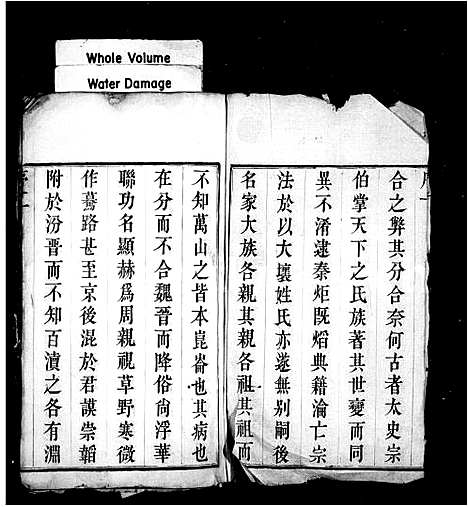 Whole Volume
Water Damage
合之弊其分合奈何古者太史宗
伯掌天下之氏族著其世變而同
異不淆逮秦炬既熖典籍淪亡宗
法於以大壞姓氏亦遂無别嗣後
名家大族各親其親各祖其祖而
不知萬山之皆本崑崙也其病也
在分而不合魏晋而降俗尙浮華
聯功名顯赫爲周親視草野寒微
作驀路甚至京後混於君謨崇韜
附於汾晋而不知百瀆之各有淵